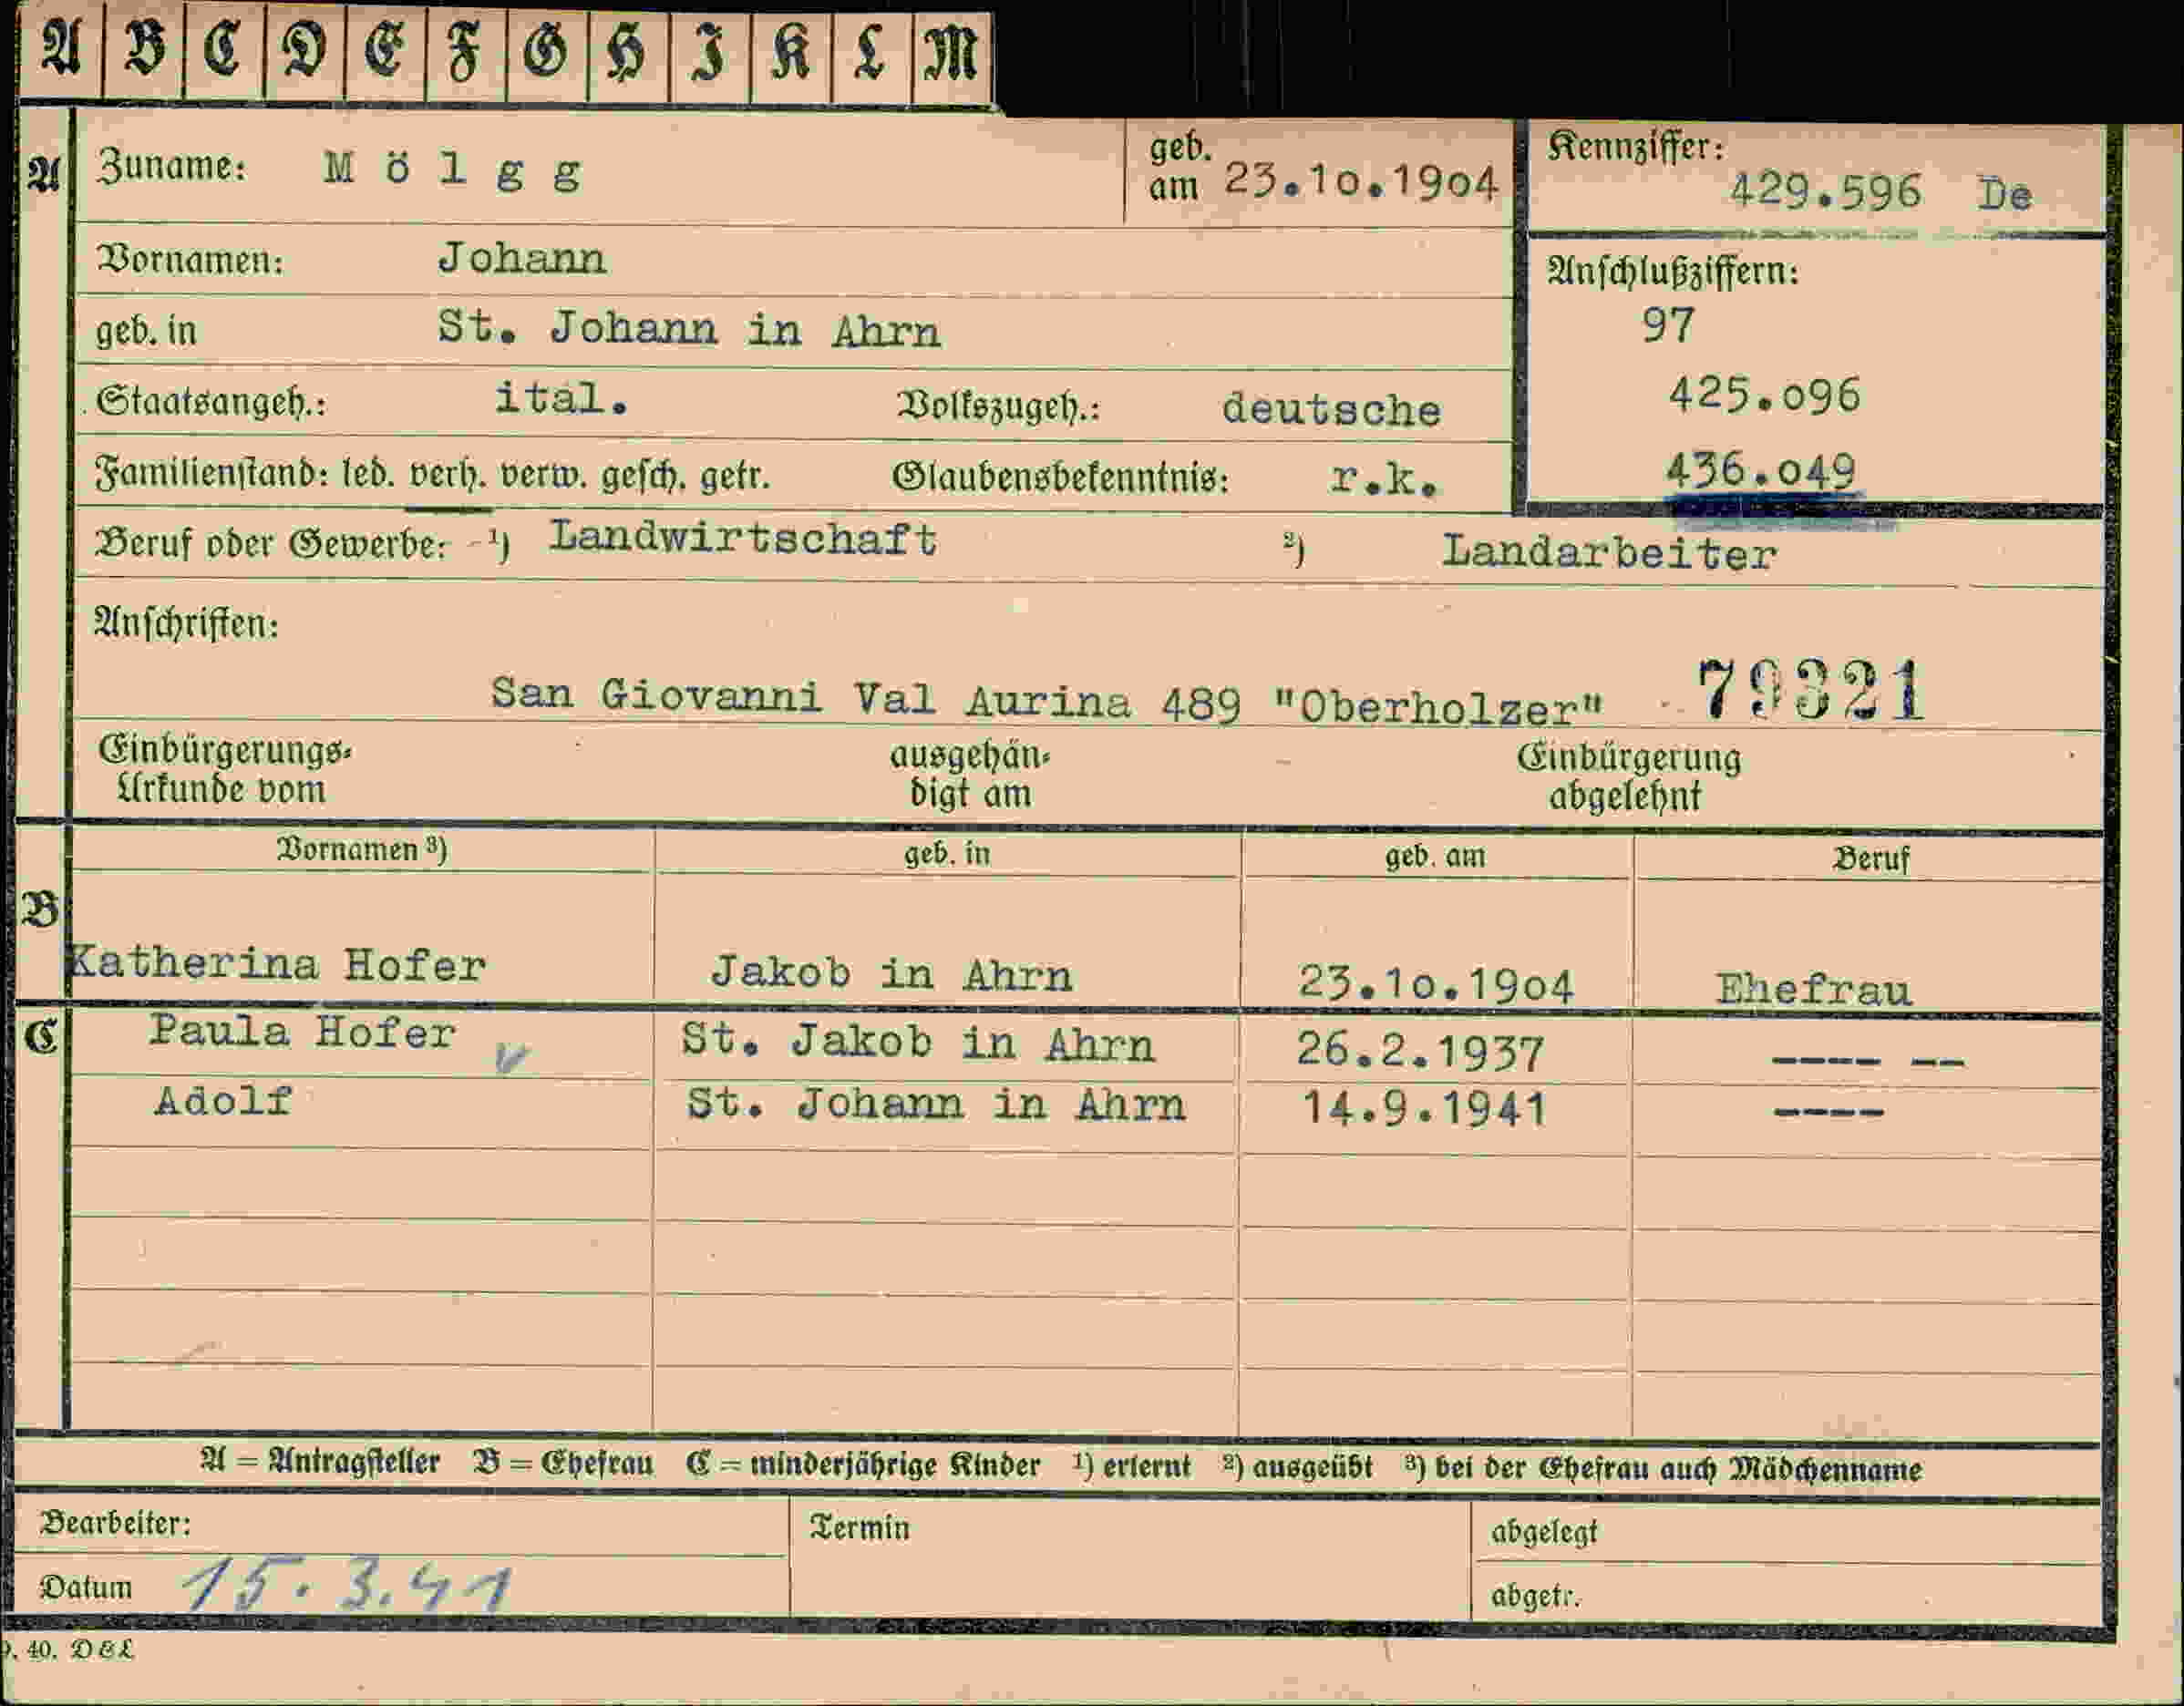 A B C D E F G H I K L M
A Zuname: Mölgg geb. am 23.10.1904 Kennziffer: 429.596 De
Vornamen: Johann Anschlußziffern:
geb. in St. Johann in Ahrn 97
Staatsangeh.: ital. Volkszugeh.: deutsche 425.096
Familienstand: led. verh. verw. gesch. getr. Glaubensbekenntnis: r.k. 436.049
Beruf oder Gewerbe: ¹) Landwirtschaft ²) Landarbeiter
Anschriften:
San Giovanni Val Aurina 489 "Oberholzer" 79321
Einbürgerungs- ausgehän- Einbürgerung
Urkunde vom digt am abgelehnt
Vornamen ³) geb. in geb. am Beruf
B
Katherina Hofer Jakob in Ahrn 23.10.1904 Ehefrau
C Paula Hofer v St. Jakob in Ahrn 26.2.1937 ---- --
Adolf St. Johann in Ahrn 14.9.1941 ----
A = Antragsteller B = Ehefrau C = minderjährige Kinder ¹) erlernt ²) ausgeübt ³) bei der Ehefrau auch Mädchenname
Bearbeiter: Termin abgelegt
Datum 15.3.41 abgetr.
9. 40. D&L